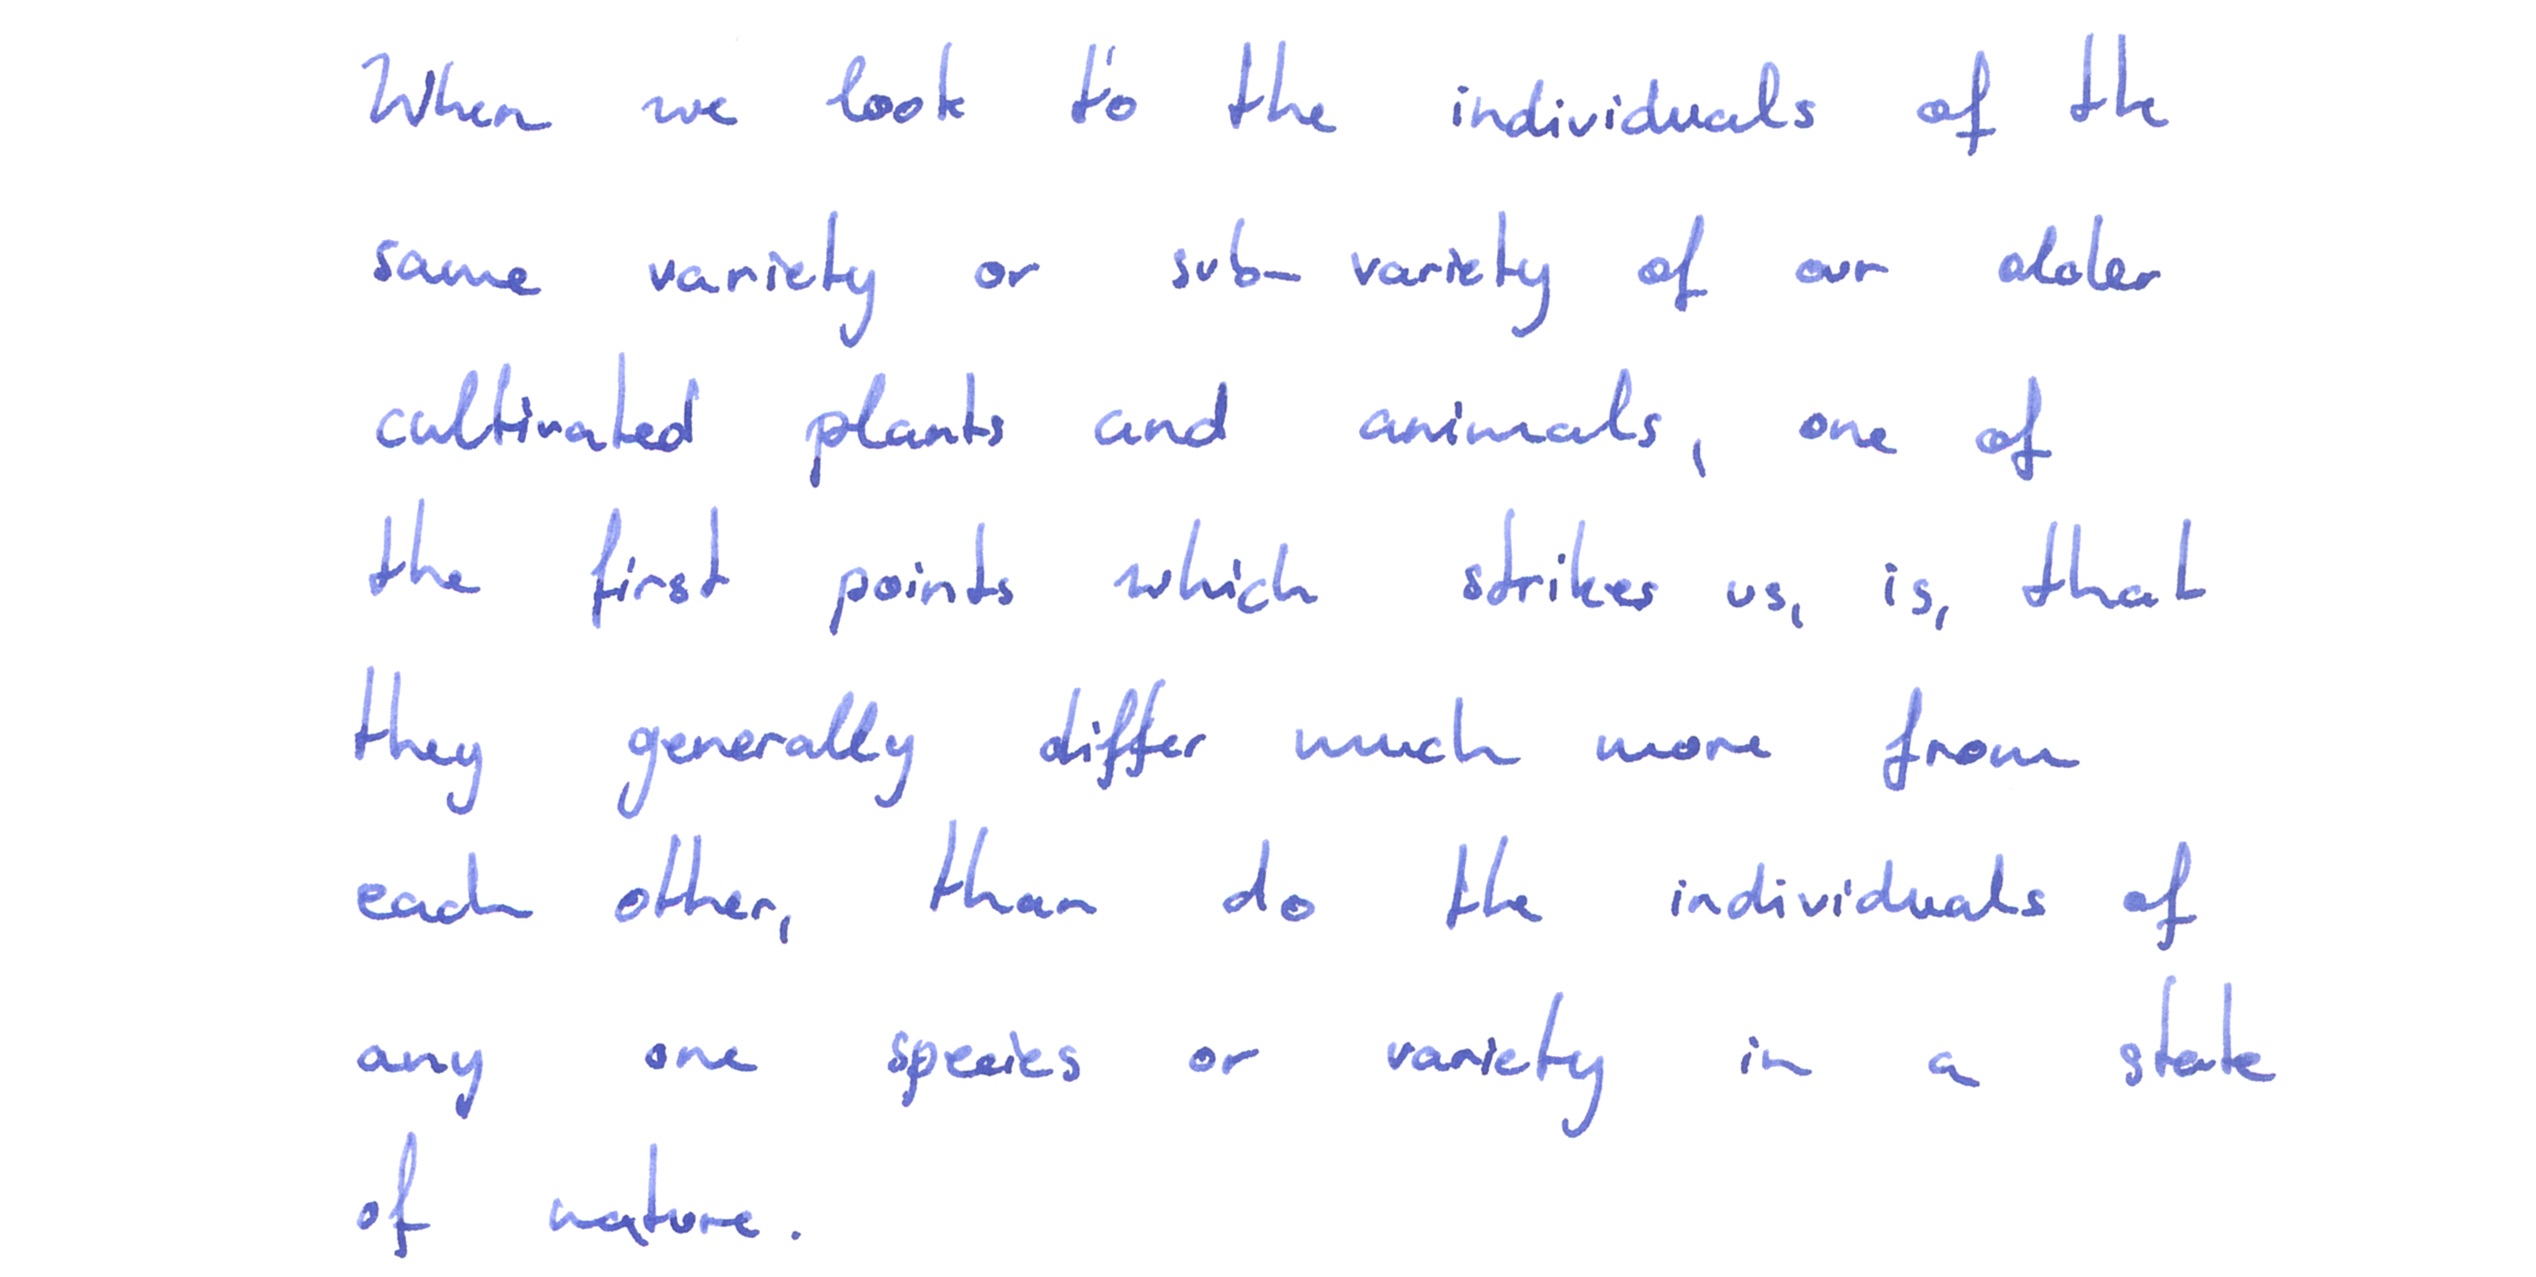 When we look to the individuals of the
same variety or sub-variety of our older
cultivated plants and animals, one of
the first points which strikes us, is, that
they generally differ much more from
each other, than do the individuals of
any one species or variety in a state
of nature.